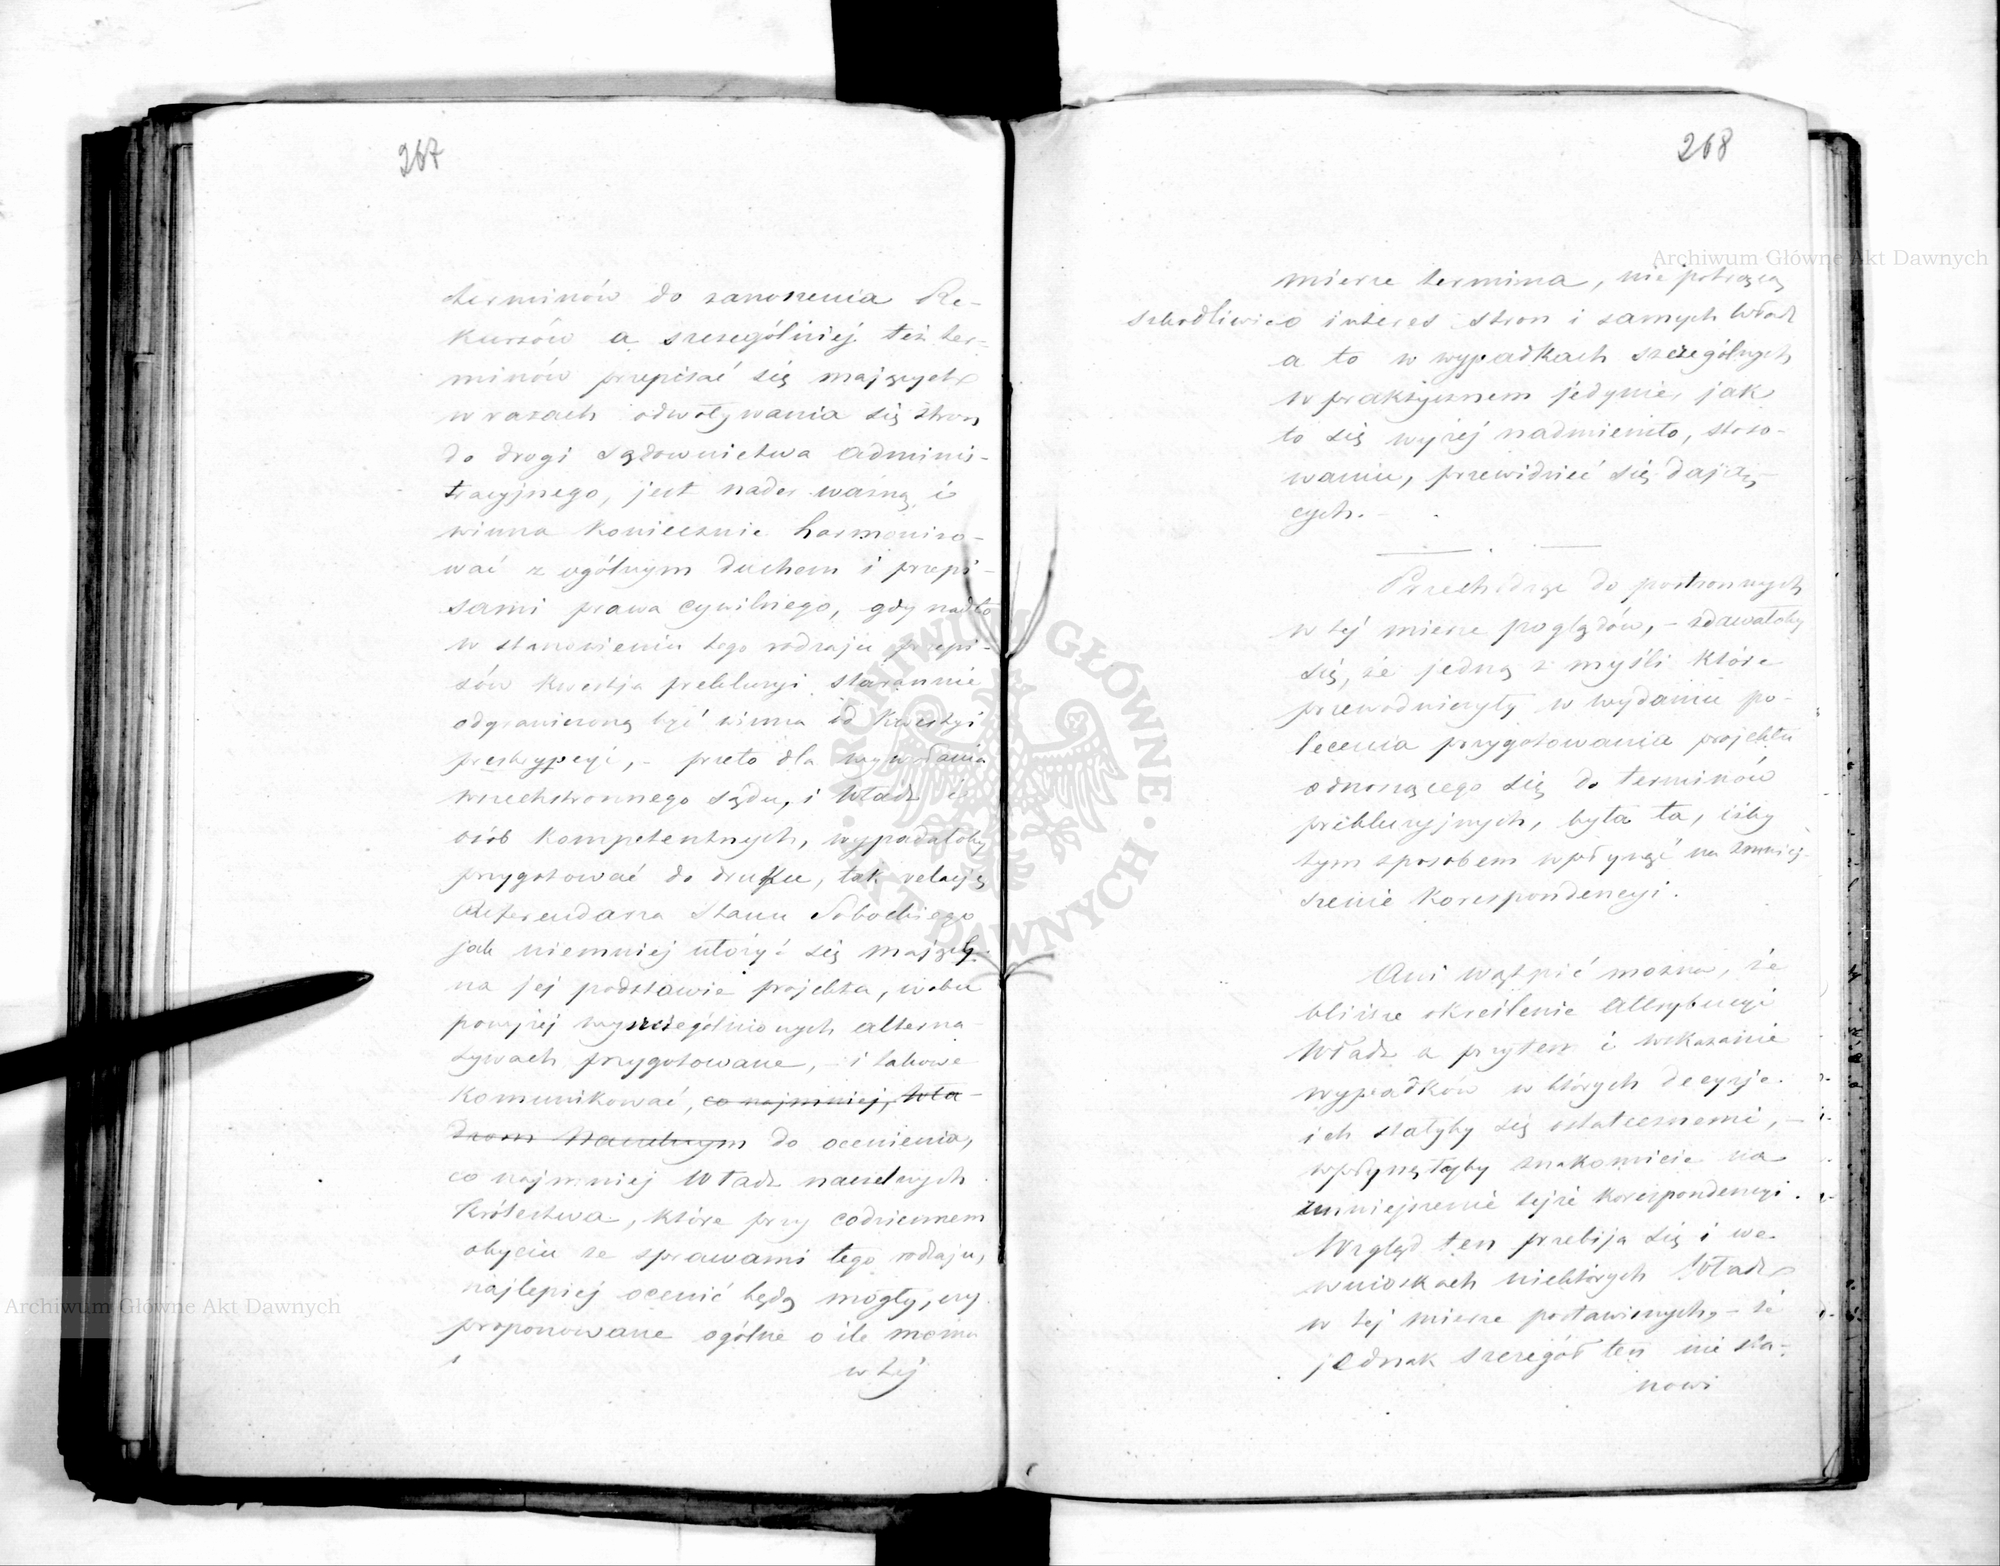 267
terminów do zanoszenia Re-
kursów a szczególniej też ter-
minów przepisać się mających
w razach odwoływania się stron
do drogi Sądownictwa Adminis-
tracyjnego, jest nader ważną i
winna koniecznie harmonizo-
wać z ogólnym duchem i przepi-
sami prawa cywilnego, gdy nadto
w stanowieniu tego rodzaju przepi-
sów kwestja prekluzyi starannie
odgraniczoną być winna od kwestyi
preskrypcyi, - przeto dla wywołania
wszechstronnego sądu, i Władz i
osób kompetentnych, wypadałoby
przygotować do druku, tak relacją
Referendarza Stanu Sobockiego
jak niemniej ułożyć się mający
na jej podstawie projekta, w obu
powyżej wyszczególnionych alterna-
tywach przygotowane, - i takowe
komunikować, co najmniej, Wła-
dzom Naczelnym do ocenienia,
co najmniej Władz naczelnych
Królestwa, które przy codziennem
obyciu ze sprawami tego rodzaju,
najlepiej ocenić będą mogły, czy
proponowane ogólne o ile można
w tej
268
mierze termina, nie potrącą
szkodliwie o interes stron i samych Władz
a to w wypadkach szczególnych
w praktycznem jedynie, jak
to się wyżej nadmieniło, stoso-
waniu, przewidzieć się dają-
cych. -
Przechodząc do postronnych
w tej mierze poglądów, - zdawałoby
się, że jedną z myśli które
przewodniczyły w wydaniu po-
lecenia przygotowania projektu
odnoszącego się do terminów
prekluzyjnych, była ta, iżby
tym sposobem wpłynąć na zmniej-
szenie korespondencyi.
Ani wątpić można, że
bliższe określenie Attrybucyi
Władz a przytem i wskazanie
wypadków w których decyzje
ich stałyby się ostatecznemi, -
wpłynęłoby znakomicie na
zmniejszenie tejże korespondencyi.
Wzgląd ten przebija się i we
wnioskach niektórych Władz
w tej mierze postawionych, - że
jednak szczegół ten nie sta-
nowi
Archiwum Główne Akt Dawnych
Archiwum Główne Akt Dawnych
ARCHIWUM GŁÓWNE AKT DAWNYCH